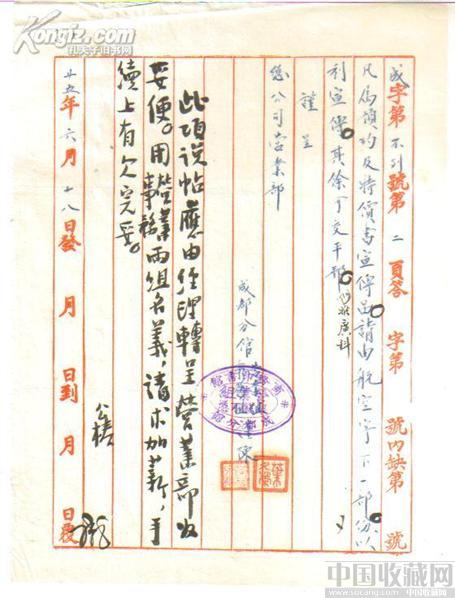 成字第不列號第二頁答 字第 號内缺第 號
凡為預約及特價書宣傳品請由航空寄下一部份以
利宣傳其餘可交平郵
推廣科
謹呈
總公司營業部
成都分館
謹陳
此項說帖應由經理轉呈營業部為
妥便。用營業
事務
兩組名義,請求加薪,手
續上有欠完妥。
廿五年六月十八日發 月 日到 月 日覆
孔夫子旧书网
中国收藏网
www.socang.com